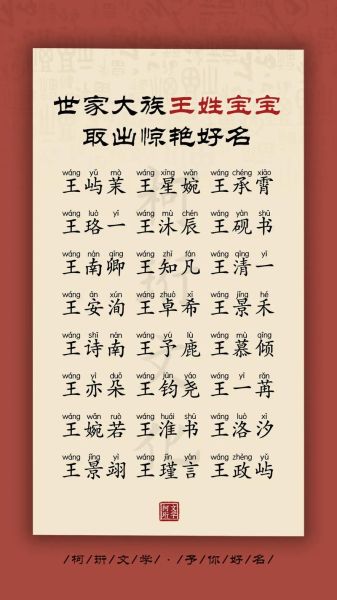 世家大族王姓宝宝
取出惊艳好名
wáng yǔ mò wáng xīng wǎn wáng chéng xiāo
王屿茉 王星婉 王承霄
wáng luò yī wáng mù chén wáng yàn shū
王珞一 王沐辰 王砚书
wáng nán qīng wáng zhī fán wáng qīng yī
王南卿 王知凡 王清一
wáng ān xún wáng zhuó xī wáng jǐng hé
王安洵 王卓希 王景禾
wáng shī nán wáng yǔ lù wáng mù qīng
王诗南 王予鹿 王慕倾
wáng yì duǒ wáng jūn yáo wáng yī rǎn
王亦朵 王钧尧 王一苒
wáng wǎn ruò wáng huái shū wáng luò xī
王婉若 王淮书 王洛汐
wáng jǐng yì wáng jǐn yán wáng zhèng yǔ
王景翊 王瑾言 王政屿
/柯/珩/文/学/·/予/你/好/名/